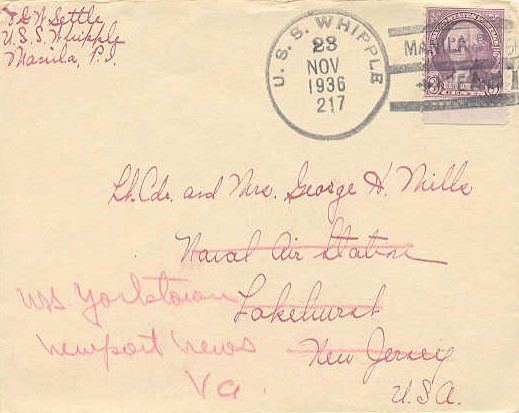 T.G.W. Settle
U.S.S. Whipple
Manila, P.I.
U.S.S. WHIPPLE
23
NOV
1936
217
MANILA
3 3
Lt. Cdr. and Mrs. George H. Mills
Naval Air Station
Lakehurst
New Jersey
U.S.A.
USS Yorktown
Newport News
Va.